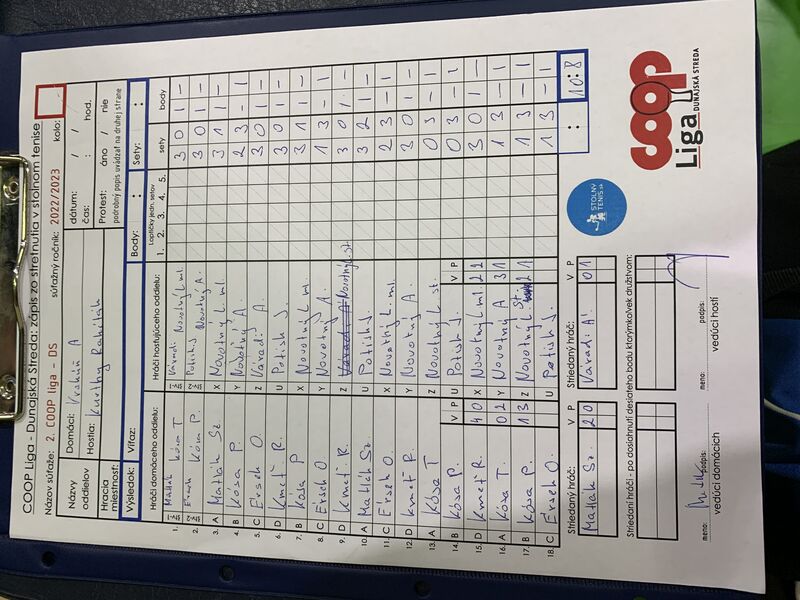 COOP Liga - Dunajská Streda: zápis zo stretnutia v stolnom tenise
Názov súťaže: 2. COOP liga - DS súťažný ročník: 2022/2023 kolo:
Názvy oddielov
Domáci: Vrakúň A
Hostia: Kurithy Rakiták
dátum: / /
čas: : hod.
Hracia miestnosť:
Protest: áno / nie
podrobný popis uvádzať na druhej strane
Výsledok: Víťaz: Body: : Sety: :
Hráči domáceho oddielu Hráči hosťujúceho oddielu Loptičky jedn. setov sety body
1. 2. 3. 4. 5.
1. Matlák Kósa T. Váradi Novotný L. ml. 3 0 1 -
2. Érsek Kósa P. Potish Novotný A. 3 0 1 -
3. A Matlák Sz X Novotný L. ml. 3 1 1 -
4. B Kósa P. Y Novotný A. 2 3 - 1
5. C Érsek O. Z Váradi A. 3 0 1 -
6. D Kmeť R. U Potish J. 3 0 1 -
7. B Kósa P. X Novotný L. ml. 3 1 1 -
8. C Érsek O Y Novotný A. 1 3 - 1
9. D Kmeť R. Z Váradi A Novotný L. st. 3 0 1 -
10. A Matlák Sz. U Potish J. 3 2 1 -
11. C Érsek O. X Novotný L. ml. 2 3 - 1
12. D Kmeť R Y Novotný A. 3 0 1 -
13. A Kósa T Z Novotný L. st. 0 3 - 1
V P V P
14. B Kósa P. U Potish J. 0 3 - 1
15. D Kmeť R. 4 0 X Novotný L. ml. 2 2 3 0 1 -
16. A Kósa T. 0 2 Y Novotný A. 3 1 1 3 - 1
17. B Kósa P. 1 3 Z Novotný L. St. 2 1 3 1 -
18. C Érsek O. U Potish J. 1 3 - 1
: 10:8
Striedaný hráč: V P Striedaný hráč: V P
Matlák Sz. 2 0 Váradi A. 0 1
Striedaní hráči - po dosiahnutí desiateho bodu ktorýmkoľvek družstvom:
meno: podpis: meno: podpis:
vedúci domácich vedúci hostí
STOLNÝ
TENIS.sk
COOP
Liga
DUNAJSKÁ STREDA